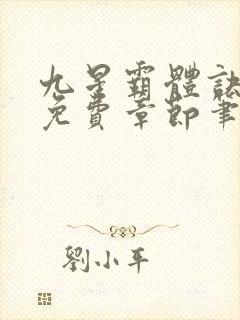 九星霸體訣
免費章節筆
劉小平